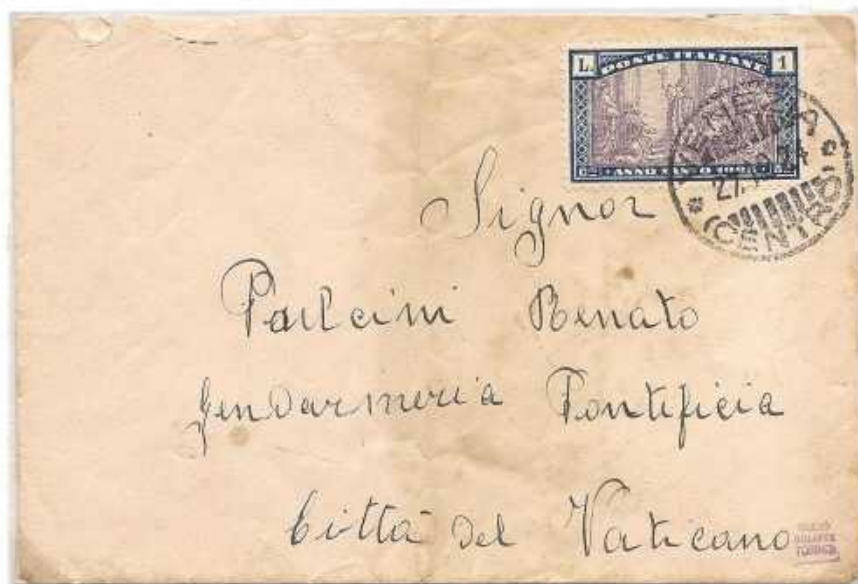 L. POSTE ITALIANE 1
ANNO SANTO 1925
VENEZIA
CENTRO
Signor
Renato
Gendarmeria Pontificia
Città del Vaticano